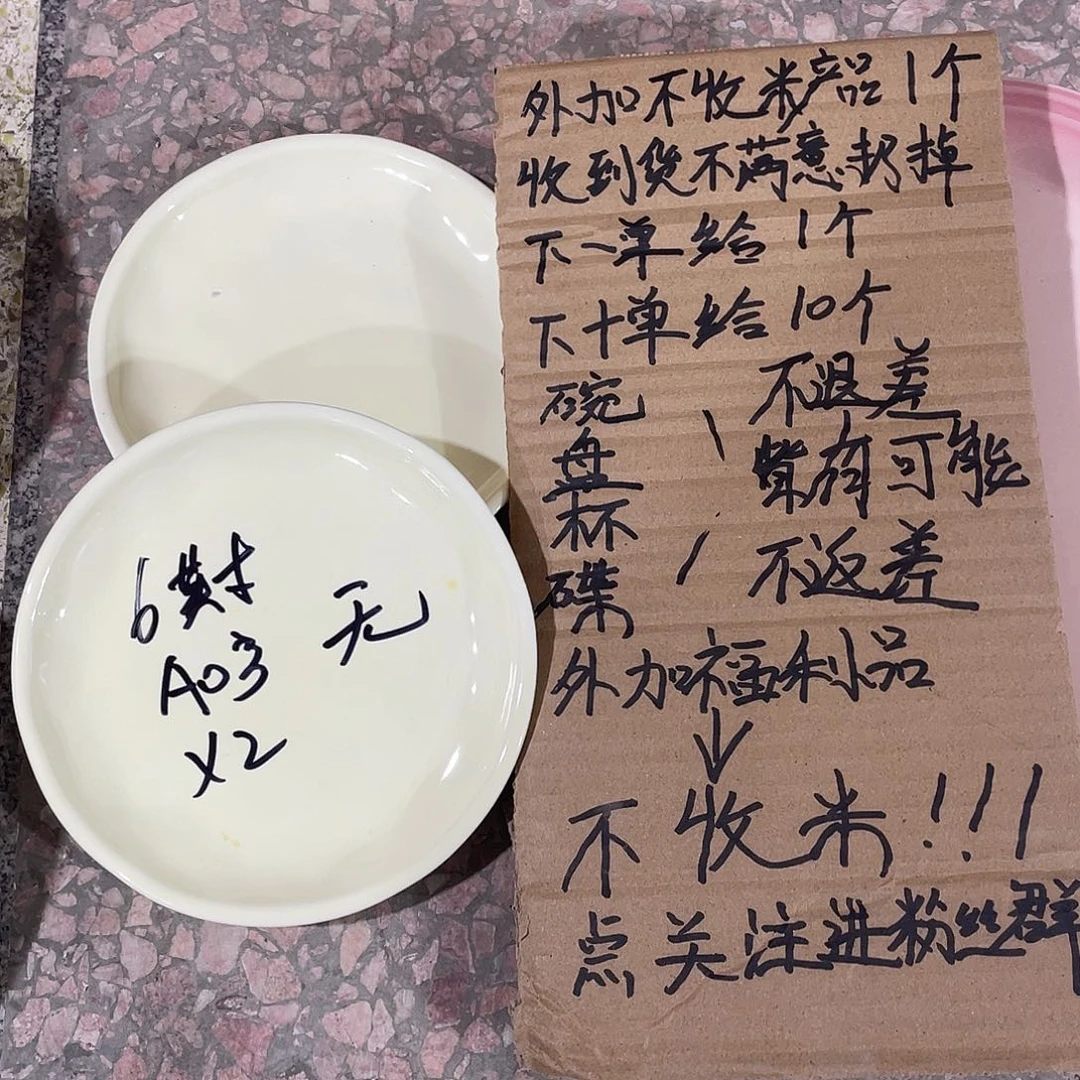 外加不收米产品1个
收到货不满意扔掉
下一单给1个
下十单给10个
碗
盘
杯
碟
不退差
皆有可能
不返差
外加福利品
不收米!!!
点关注进粉丝群
6英寸
A03
X2
无